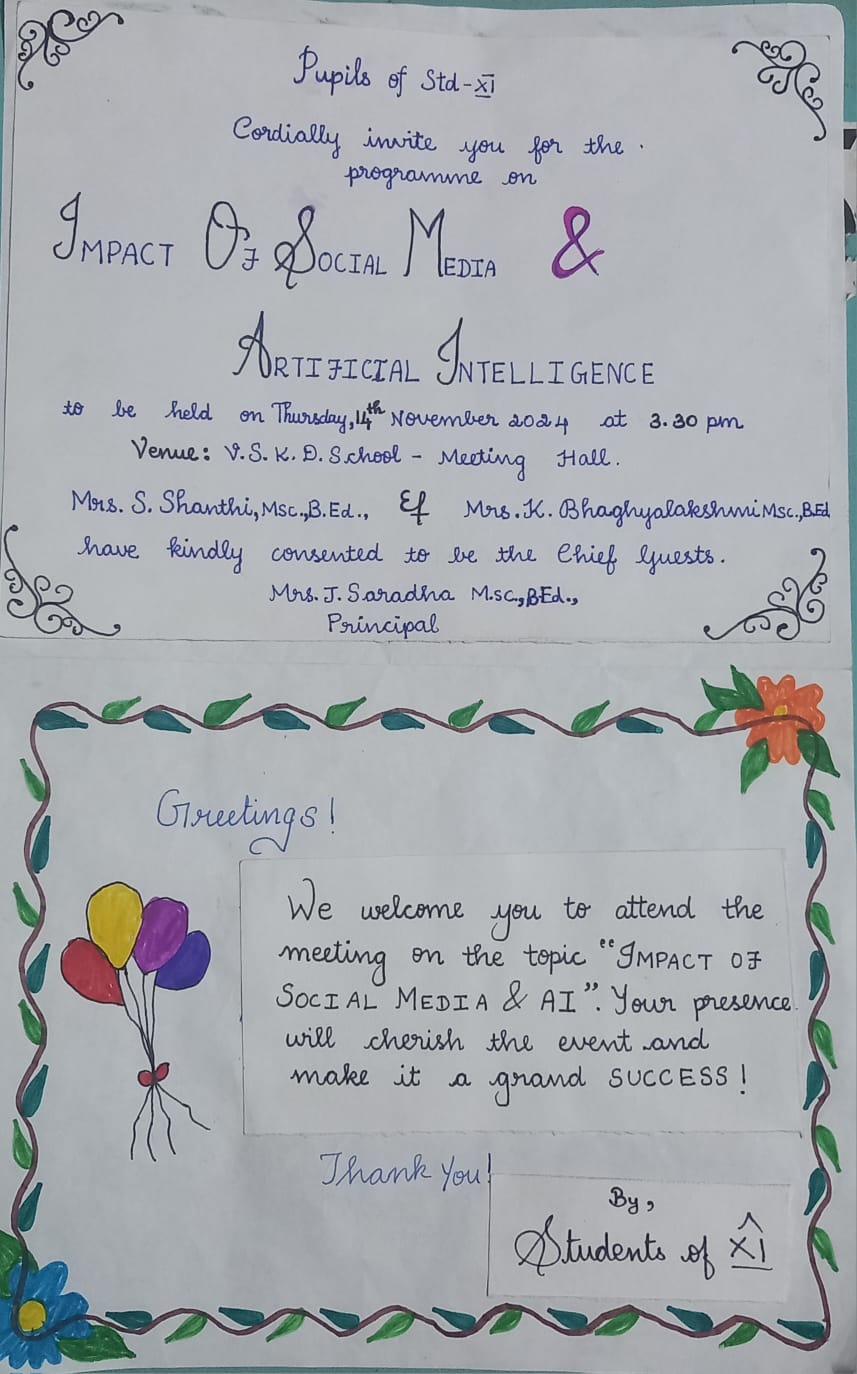 Pupils of Std-XI
Cordially invite you for the
programme on
IMPACT Of SOCIAL MEDIA &
ARTIFICIAL INTELLIGENCE
to be held on Thursday, 14th November 2024 at 3.30 pm
Venue: V.S.K.D. School - Meeting Hall.
Mrs. S. Shanthi, Msc.,B.Ed., & Mrs. K. Bhaghyalakshmi Msc.,B.Ed
have kindly consented to be the Chief Guests.
Mrs. J. Saradha M.sc.,B.Ed.,
Principal
Greetings!
We welcome you to attend the
meeting on the topic "IMPACT OF
SOCIAL MEDIA & AI". Your presence
will cherish the event and
make it a grand SUCCESS!
Thank You!
By,
Students of XI